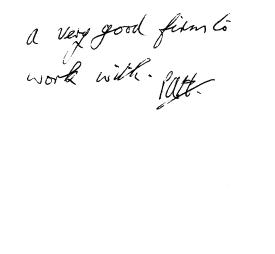 a very good firm to
work with.